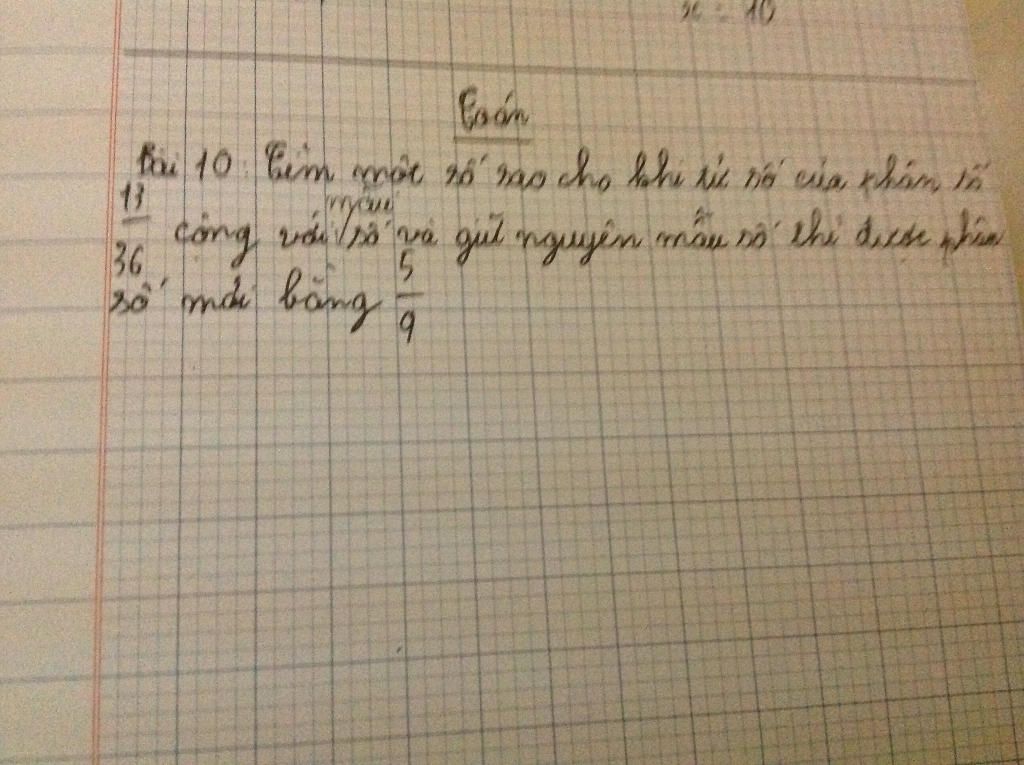 x = 10
Toán
Bài 10: Tìm một số sao cho khi tử số của phân số
13/36 cộng với mẫu số và giữ nguyên mẫu số thì được phân
số mới bằng 5/9